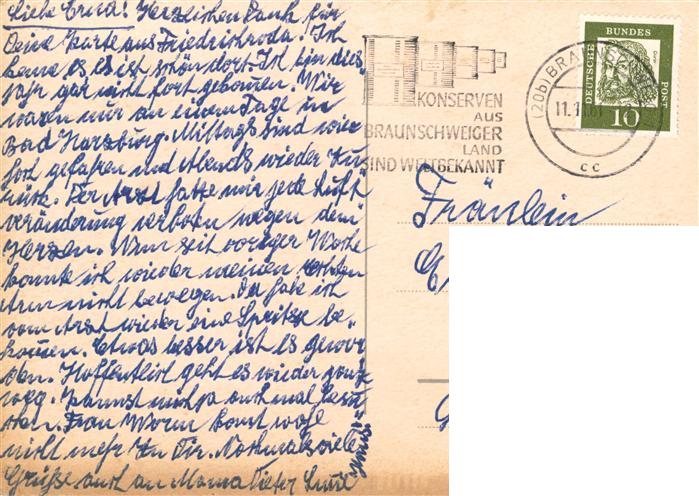 Liebe Erna! Herzlichen Dank für
Deine Karte aus Friedrichroda! Ich
kene es es ist schön dort. Ich bin dies
Jahr gar nicht fort gekomen. Wir
waren nur an einem Tage in
Bad Harzburg. Mittags sind wir
fort gefahren und Abends wieder zu
rück. Der Arzt hatte mir jede Luft
veränderung verboten wegen dem
Herzen. Nun seit voriger Woche
konnte ich wieder meinen rechten
Arm nicht bewegen. Da habe ich
vom Arzt wieder eine Spritze be
komen. Etwas besser ist es gewor
den. Hoffentlich geht es wieder ganz
weg. Kannst mich ja auch mal besu
chen. Frau Worm komt wohl
nicht mehr zu Dir. Nochmals viele
Grüße auch an Mama
KONSERVEN
AUS
BRAUNSCHWEIGER
LAND
SIND WELTBEKANNT
(20b) BRAUN
11.1
cc
DEUTSCHE
BUNDES
POST
10
Fräulein